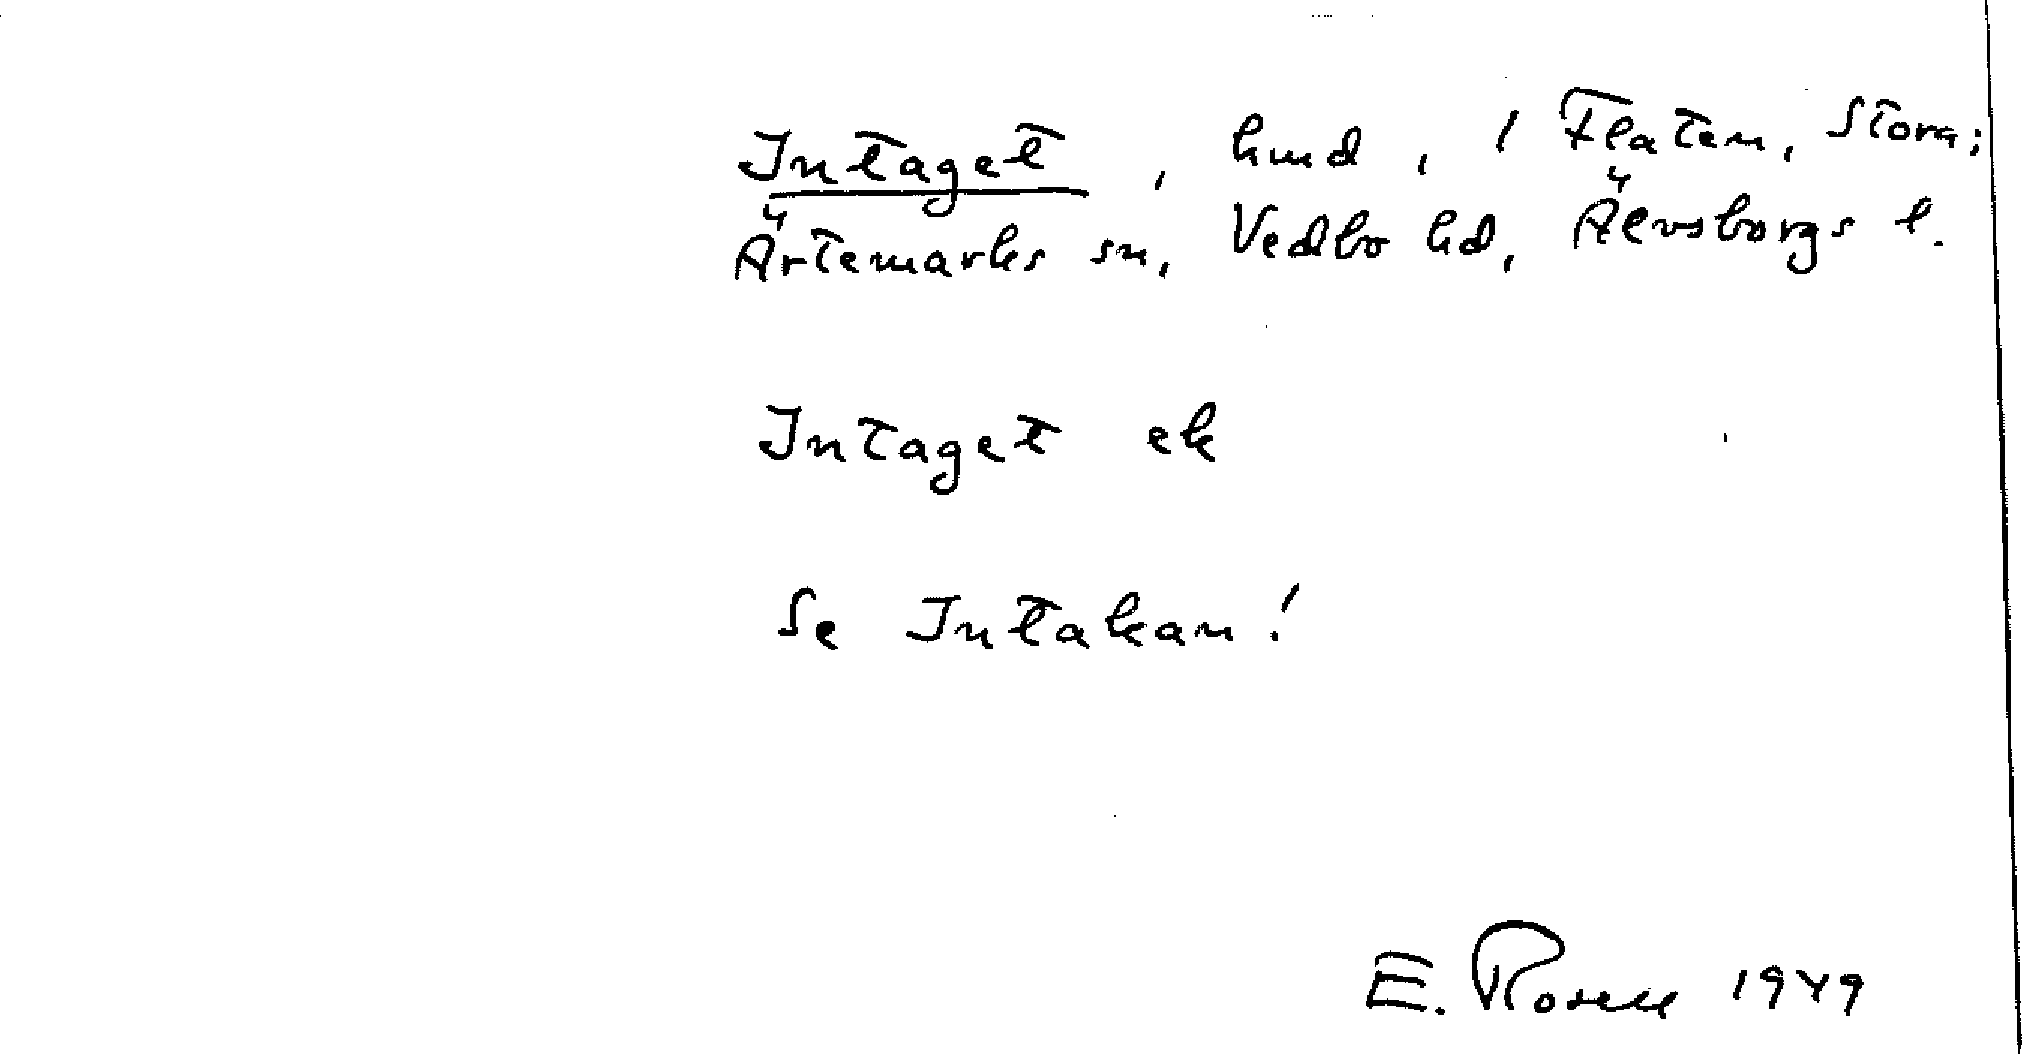 Intaget, hmd, 1 Flaten, Stora;
Ärtemarks sn, Vedbo hd, Älvsborgs l.
Intaget ek
Se Intakan!
E. Rosell 1949